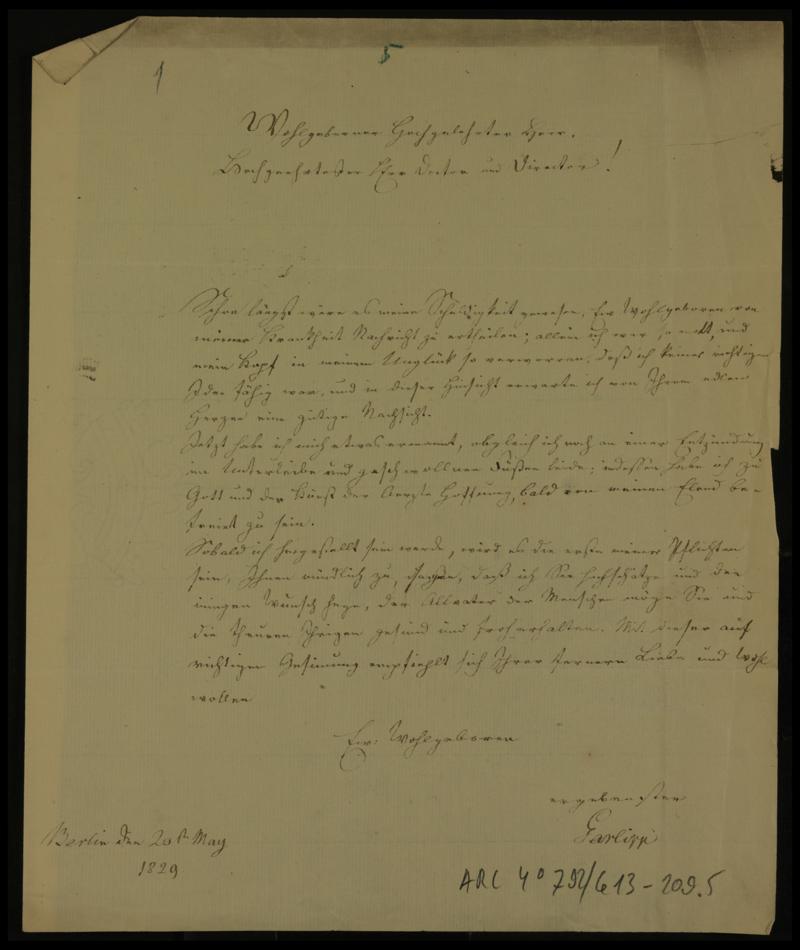 1
5
Wohlgeborner Hochgelehrter Herr.
Hochgeehrtester Herr Doctor und Director!
Schon längst wäre es meine Schuldigkeit gewesen, Ew Wohlgeboren von
meiner Krankheit Nachricht zu ertheilen; allein ich war so matt, und
mein Kopf in meinem Unglück so verworren, daß ich keiner richtigen
Idee fähig war, und in dieser Hinsicht erwarte ich von Ihrem edlen
Herzen eine gütige Nachsicht.
Jetzt habe ich mich etwas ermannt, obgleich ich noch an einer Entzündung
im Unterleibe und geschwollnen Füßen leide; indessen habe ich zu
Gott und der Kunst der Aerzte Hoffnung, bald von meinem Elend be-
freiet zu sein.
Sobald ich hergestellt sein werde, wird es die erste meiner Pflichten
sein, Ihnen mündlich zu sagen, daß ich Sie hochschätze und den
innigen Wunsch hege, der Allvater der Menschen möge Sie und
die theuren Ihrigen gesund und froh erhalten. Mit dieser auf
richtigen Gesinnung empfiehlt sich Ihrer fernern Liebe und Wohl
wollen
Ew: Wohlgeboren
ergebenster
Garlipp
Berlin den 20t May
1829
ARC 4° 792/G13-209.5